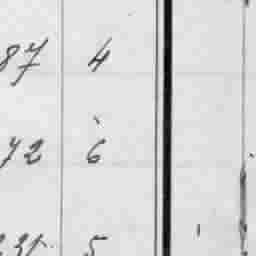 87 4
72 6
5